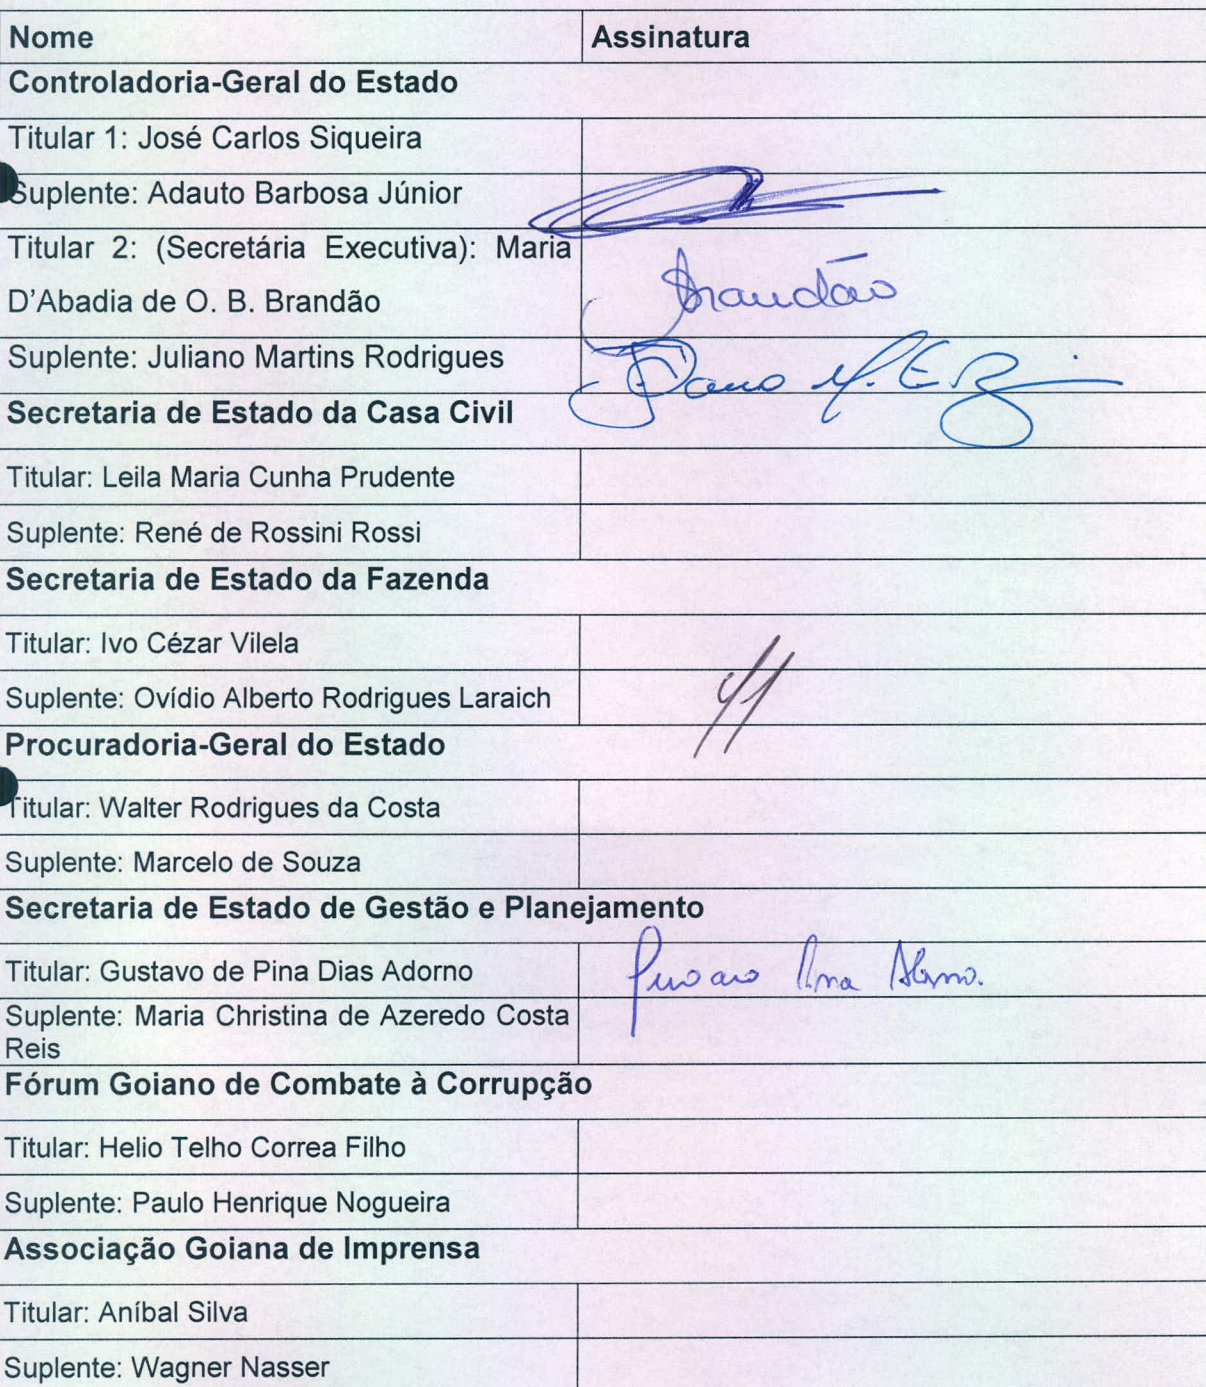 Nome Assinatura
Controladoria-Geral do Estado
Titular 1: José Carlos Siqueira
Suplente: Adauto Barbosa Júnior
Titular 2: (Secretária Executiva): Maria
D'Abadia de O. B. Brandão
Brandão
Suplente: Juliano Martins Rodrigues
Secretaria de Estado da Casa Civil
Titular: Leila Maria Cunha Prudente
Suplente: René de Rossini Rossi
Secretaria de Estado da Fazenda
Titular: Ivo Cézar Vilela
Suplente: Ovídio Alberto Rodrigues Laraich
Procuradoria-Geral do Estado
Titular: Walter Rodrigues da Costa
Suplente: Marcelo de Souza
Secretaria de Estado de Gestão e Planejamento
Titular: Gustavo de Pina Dias Adorno
Suplente: Maria Christina de Azeredo Costa
Reis
Fórum Goiano de Combate à Corrupção
Titular: Helio Telho Correa Filho
Suplente: Paulo Henrique Nogueira
Associação Goiana de Imprensa
Titular: Aníbal Silva
Suplente: Wagner Nasser